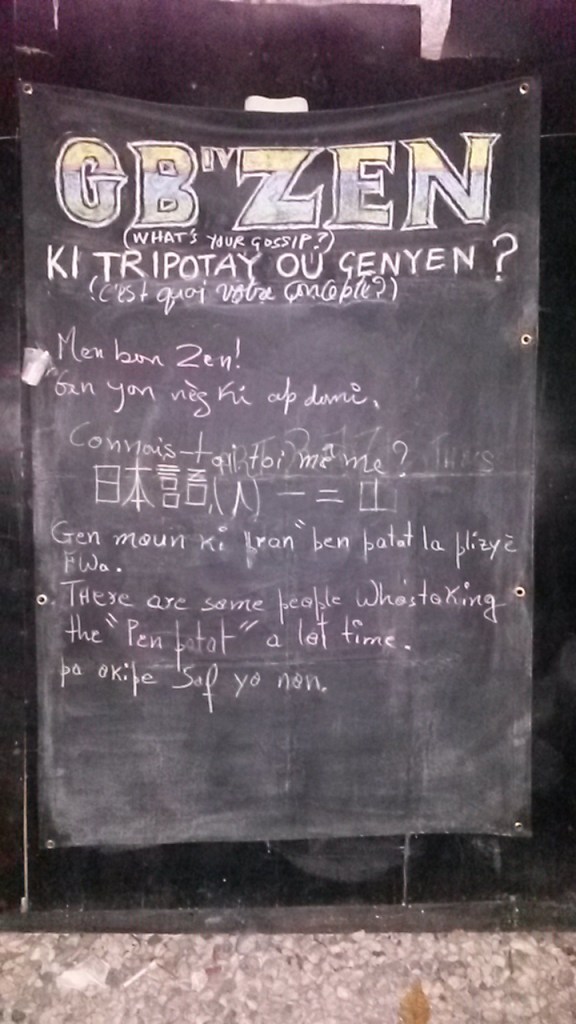 GB"ZEN
(WHAT'S YOUR GOSSIP?)
KI TRIPOTAY OU GENYEN?
(C'est quoi votre concepte?)
Men bon Zen!
Gen yon nèg ki ap domi.
Connais-t toi même?
日本語,(人) 一 二
Gen moun ki pran "pen patat la plizyè
FWa.
THere are some people who's taking
the "Pen patat" a lot time.
pa okipe Saf yo non.